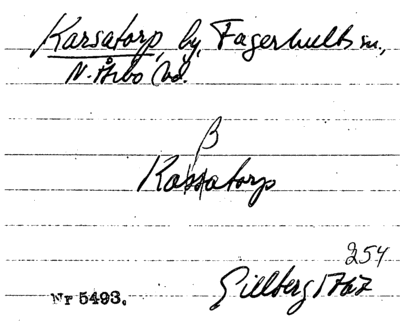 Karsatorp, by, Fagerhults sn.,
N. Åsbo hd.
β
Kassatorp
254
Gillberg 1767
Nr 5493.